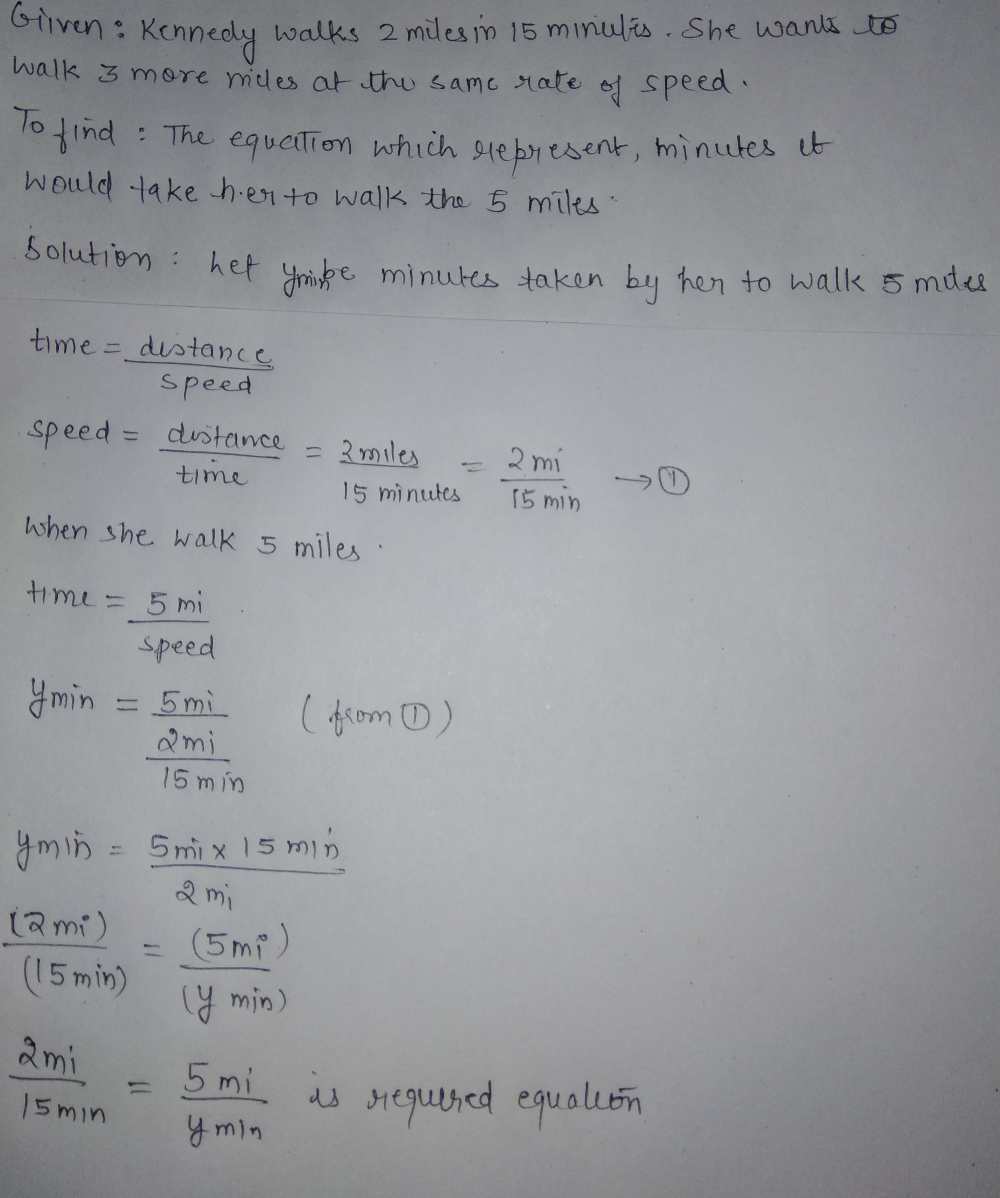 Given : Kennedy walks 2 miles in 15 minutes. She wants to
walk 3 more miles at the same rate of speed.
To find : The equation which represent, minutes it
would take her to walk the 5 miles.
Solution : Let y min be minutes taken by her to walk 5 miles
time = distance / speed
speed = distance / time = 2 miles / 15 minutes = 2 mi / 15 min → ①
When she walk 5 miles.
time = 5 mi / speed
y min = 5 mi / (2 mi / 15 min) (from ①)
y min = 5 mi x 15 min / 2 mi
(2 mi) / (15 min) = (5 mi) / (y min)
2 mi / 15 min = 5 mi / y min is required equation